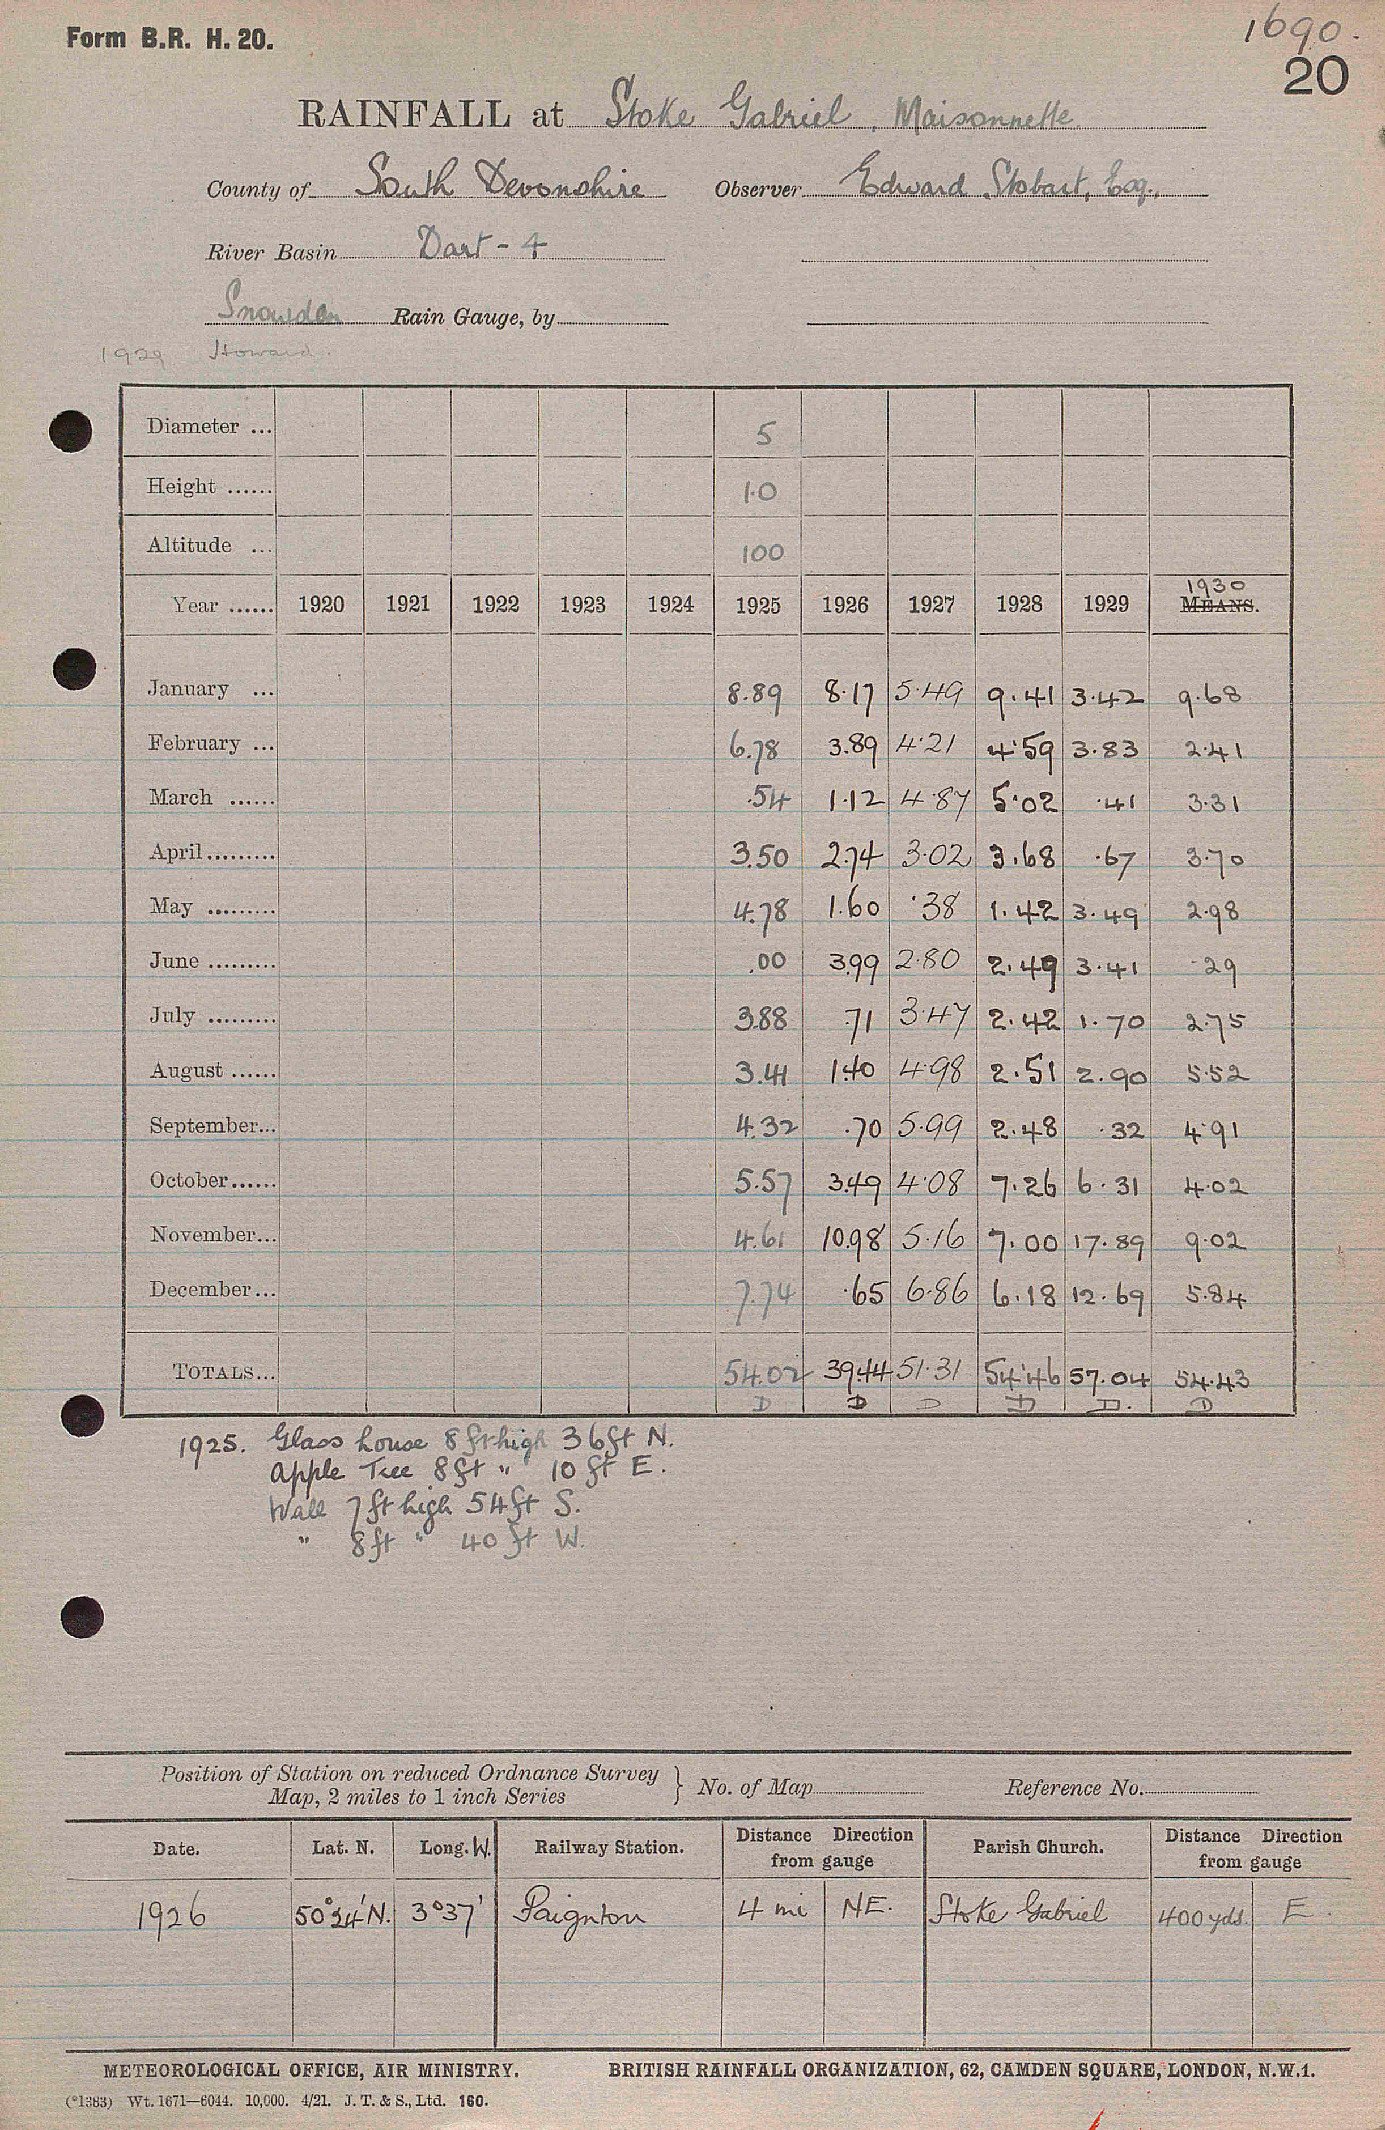 1690.
Form B.R. H. 20.
20
RAINFALL at Stoke Gabriel, Maisonnette
County of South Devonshire Observer Edward Stobart, Esq.,
River Basin Dart - 4
Snowden Rain Gauge, by
1929 Howard.
Diameter ... 5
Height ...... 1.0
Altitude ... 100
1930
Year ...... 1920 1921 1922 1923 1924 1925 1926 1927 1928 1929 MEANS.
January ... 8.89 8.17 5.49 9.41 3.42 9.68
February ... 6.78 3.89 4.21 4.59 3.83 2.41
March ...... .54 1.12 4.87 5.02 .41 3.31
April......... 3.50 2.74 3.02 3.68 .67 3.70
May ......... 4.78 1.60 .38 1.42 3.49 2.98
June ......... .00 3.99 2.80 2.49 3.41 .29
July ......... 3.88 .71 3.47 2.42 1.70 2.75
August ...... 3.41 1.40 4.98 2.51 2.90 5.52
September... 4.32 .70 5.99 2.48 .32 4.91
October...... 5.57 3.49 4.08 7.26 6.31 4.02
November... 4.61 10.98 5.16 7.00 17.89 9.02
December... 7.74 .65 6.86 6.18 12.69 5.84
TOTALS... 54.02 39.44 51.31 54.46 57.04 54.43
D D D D D. D
1925. Glass house 8 ft high 36ft N.
Apple Tree 8ft " 10 ft E.
Wall 7 ft high 54ft S.
" 8ft " 40 ft W.
Position of Station on reduced Ordnance Survey
Map, 2 miles to 1 inch Series } No. of Map Reference No.
Date. Lat. N. Long. W. Railway Station. Distance Direction from gauge Parish Church. Distance Direction from gauge
1926 50°24'N. 3°37' Paignton 4 mi NE. Stoke Gabriel 400 yds. E.
METEOROLOGICAL OFFICE, AIR MINISTRY. BRITISH RAINFALL ORGANIZATION, 62, CAMDEN SQUARE, LONDON, N.W.1.
(*1383) Wt. 1671—6044. 10,000. 4/21. J. T. & S., Ltd. 160.